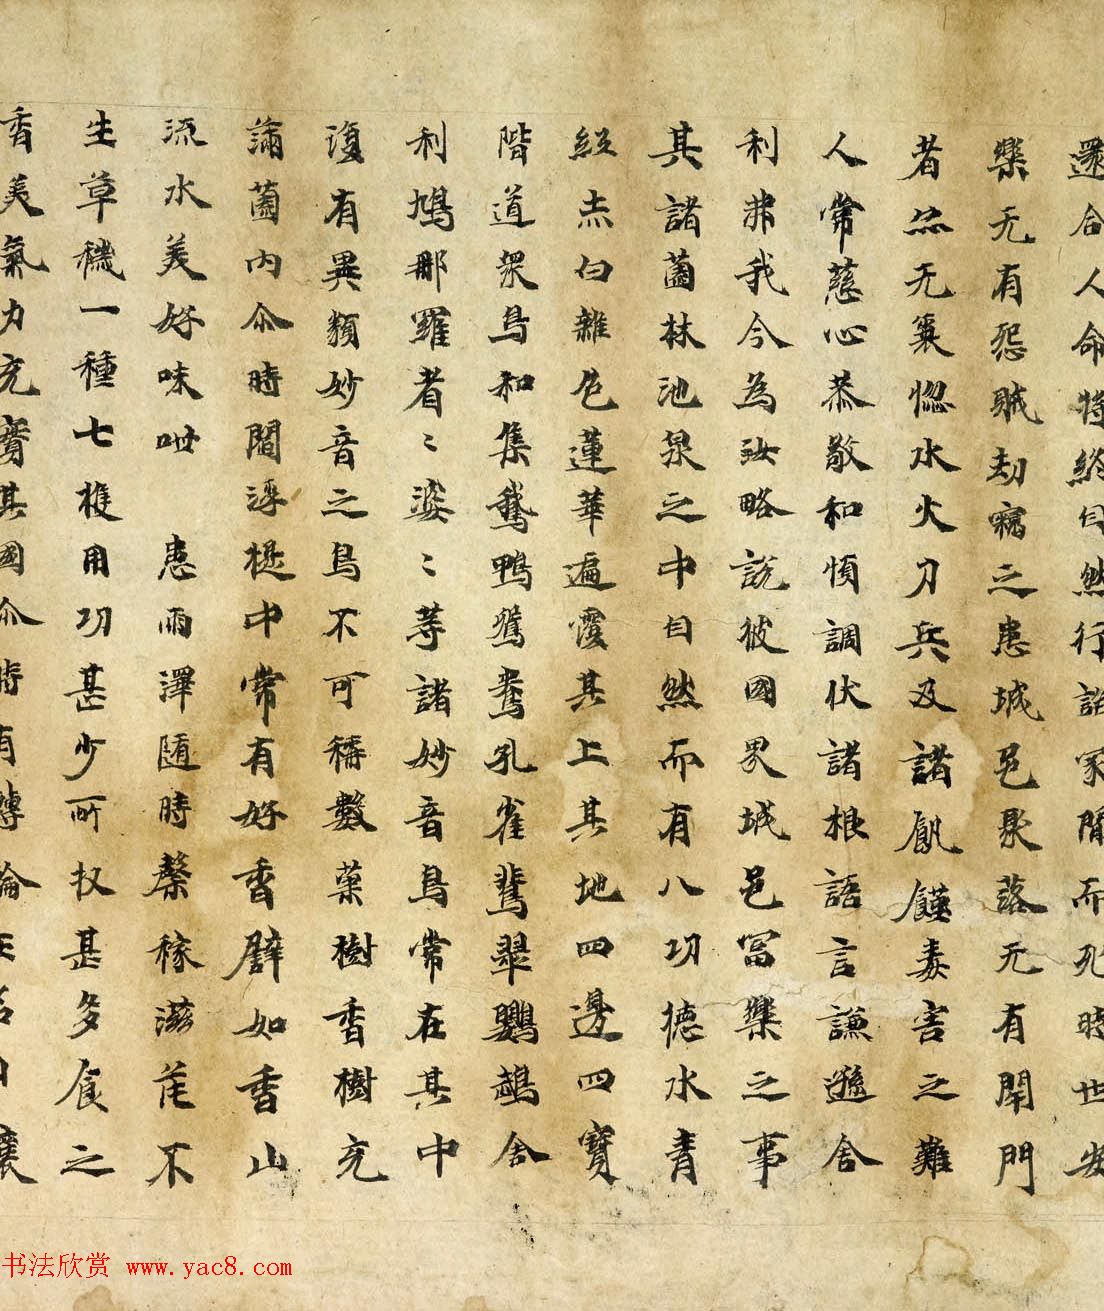 還合人命將終自然行詣冢間而死時世安
樂无有怨賊劫竊之患城邑聚落无有閇門
者亦无衰惱水火刀兵及諸飢饉毒害之難
人常慈心恭敬和慎調伏諸根語言謙遜舍
利弗我今為汝略說彼國界城邑冨樂之事
其諸薗林池泉之中自然而有八功德水青
紅赤白雜色蓮華遍覆其上其地四邊四寶
階道衆鳥和集鵝鴨鴛鴦孔雀翡翠鸚鵡舍
利鳩那羅耆〻婆〻等諸妙音鳥常在其中
復有異類妙音之鳥不可稱數菓樹香樹充
滿薗内尒時閻浮提中常有好香譬如香山
流水美好味甘 患雨澤随時縠稼滋茂不
生草穢一種七穫用功甚少所収甚多食之
香美氣力充實其國尒時有轉輪王名曰蠰
书法欣赏 www.yac8.com